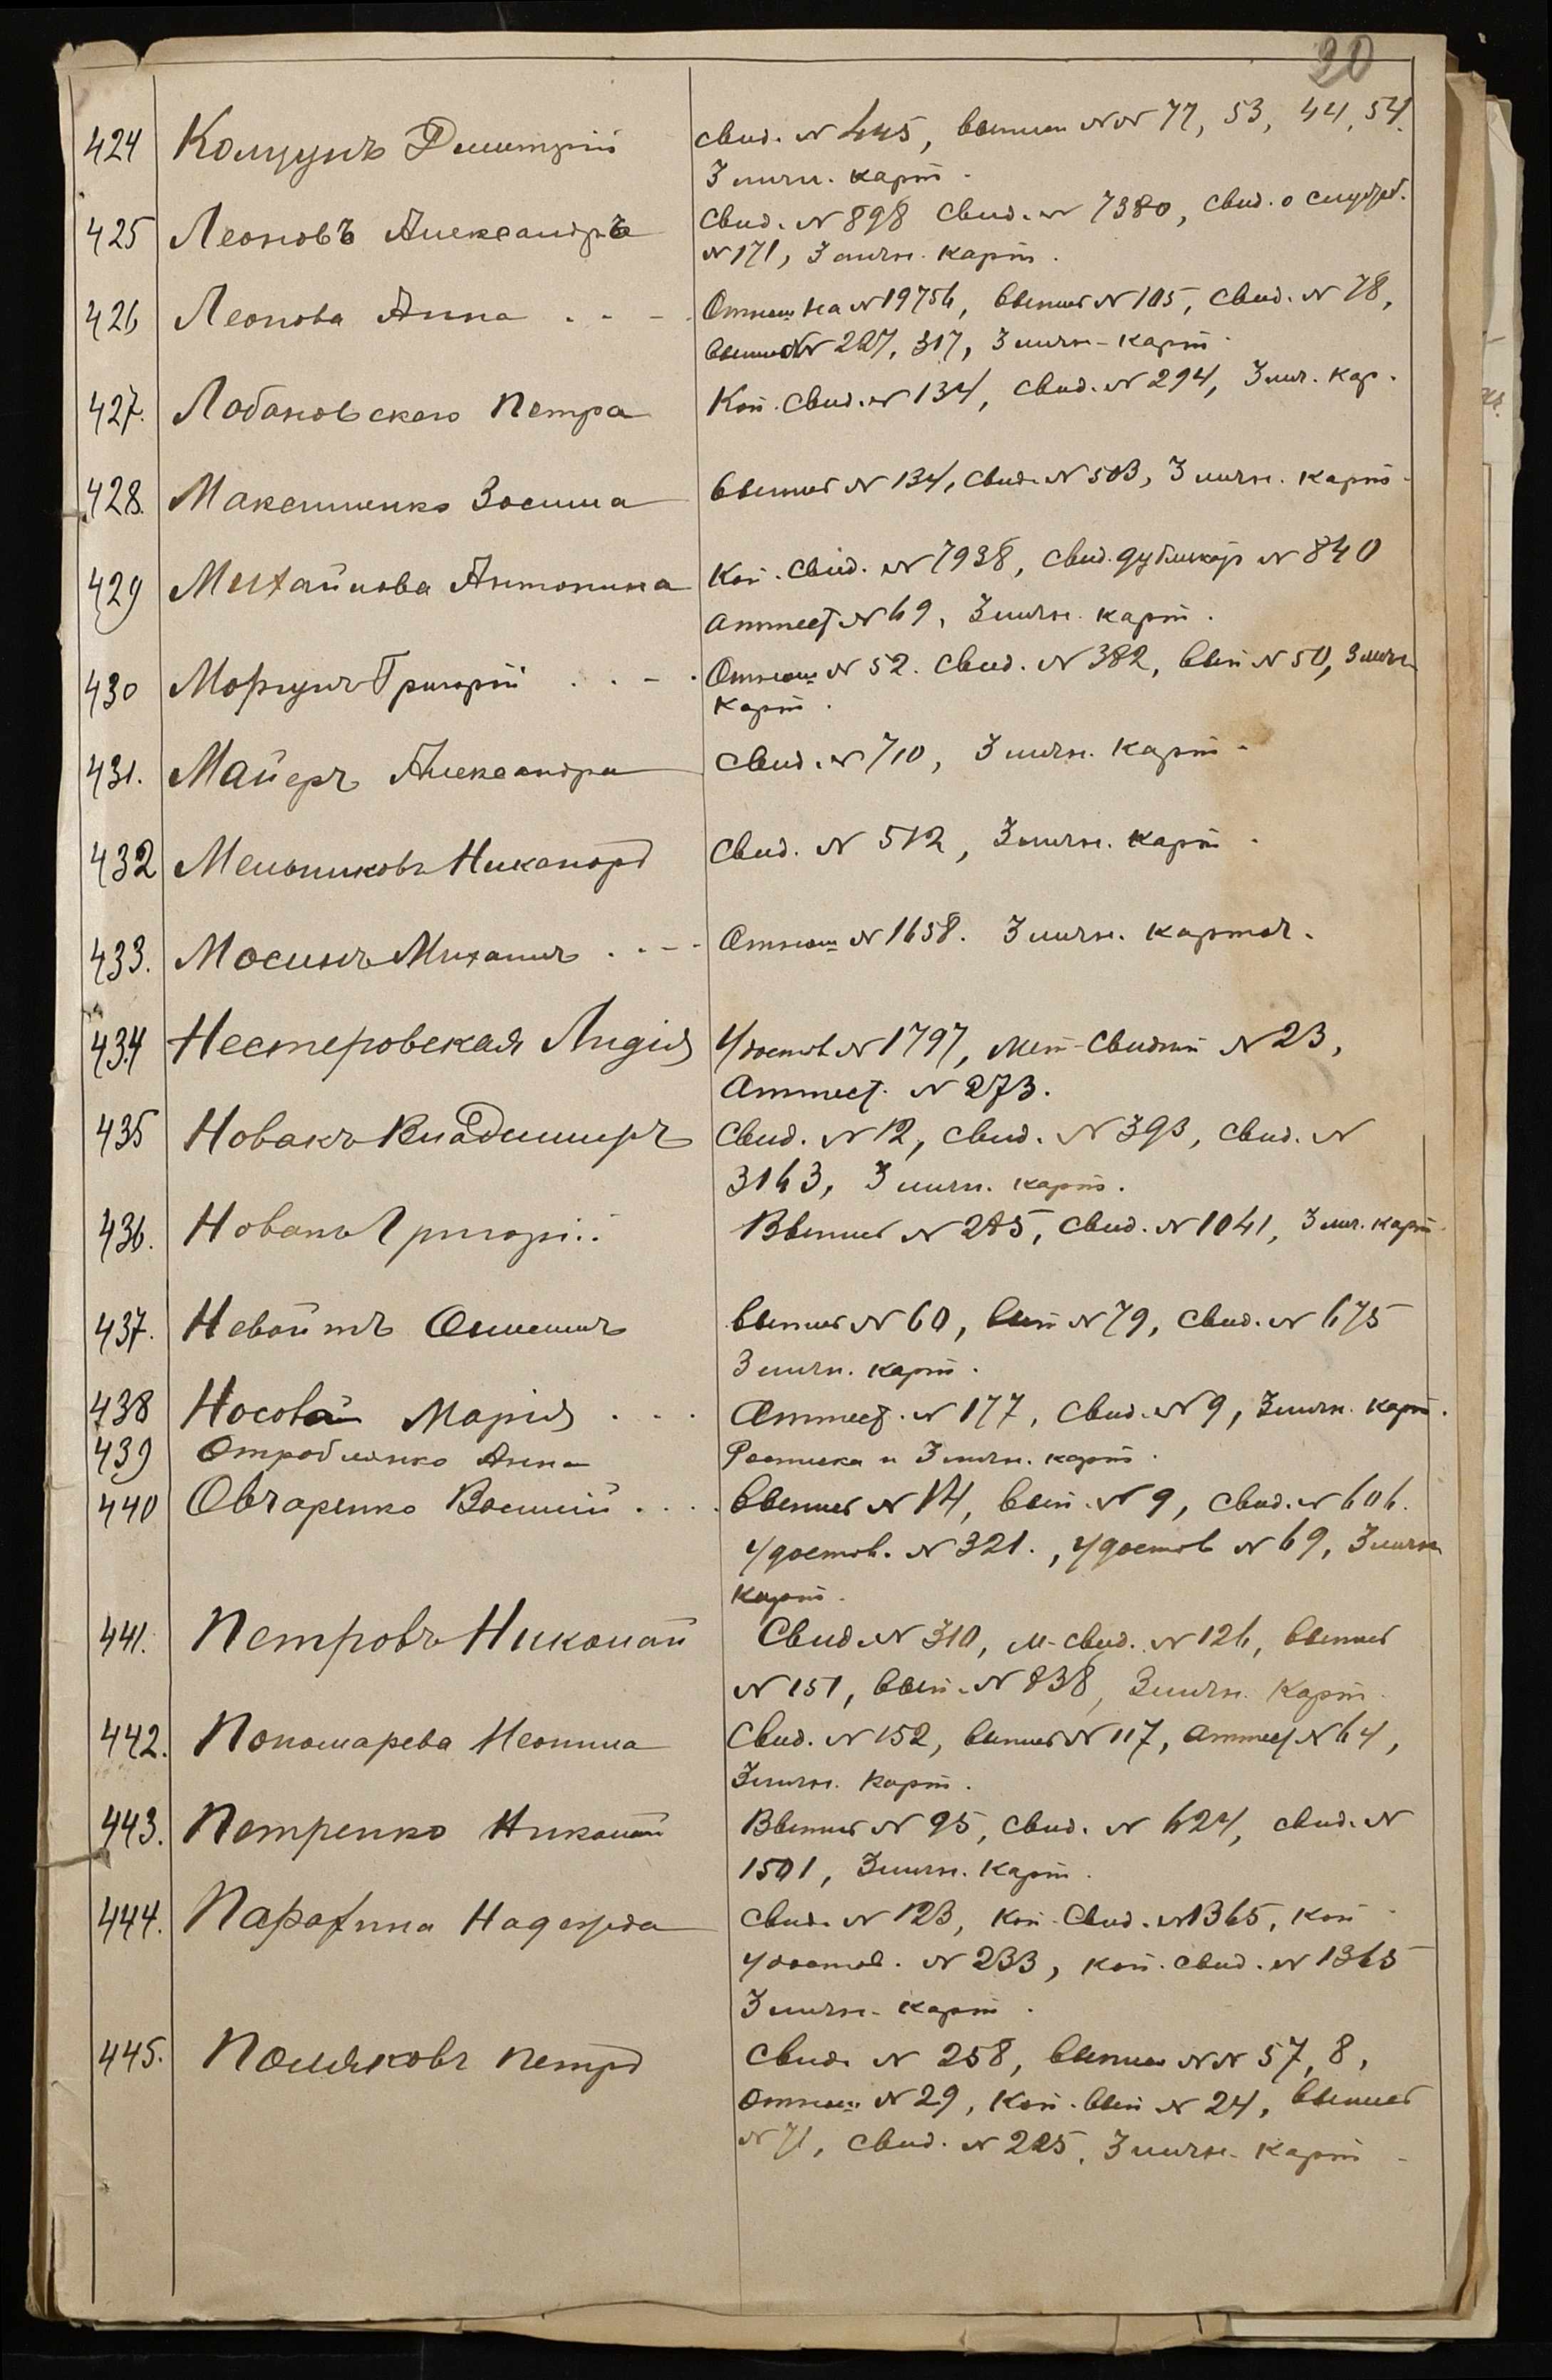 20
424 Колцунъ Димитрій свид. № 445, выпис №№ 77, 53, 44, 54.
3 личн. карт.
425 Леоновъ Александръ Свид. № 898 Свид. № 7380, свид. о служеб.
№ 171, 3 личн. карт.
426 Леонова Анна . . - Отнош на № 19756, выпис № 105, свид. № 78,
выпис №№ 227, 317, 3 личн - карт.
427. Лобановскаго Петра Коп. свид. № 134, свид. № 294, 3 лич. кар.
428. Максименко Зосима выпис № 134, свид. № 503, 3 личн. карт.
429 Михайлова Антонина Коп. свид. № 7938, свид. дубликат № 840
аттест № 69, 3 личн. карт.
430 Моргунъ Григорій . . - . Отнош № 52. свид. № 382, вып № 50, 3 личн
карт.
431. Майеръ Александра свид. № 710, 3 личн. карт.
432 Мельниковъ Никаноръ Свид. № 512, 3 личн. карт.
433. Мосинъ Михаилъ . . - - Отнош № 1658. 3 личн. карточ.
434 Нестеровская Лидія Удостов № 1797, мет - свидет № 23,
Аттест. № 273.
435 Новакъ Владимиръ Свид. № 12, свид. № 393, свид. №
3163, 3 личн. карт.
436. Новакъ Григорій Выпис № 285, свид. № 1041, 3 лич. карт
437. Невойтъ выпис № 60, вып № 79, свид. № 675
3 личн. карт.
438 Носовая Марія . . . Аттест. № 177, свид. № 9, 3 личн. карт.
439 Анна Росписка и 3 личн. карт.
440 Овчаренко Василій . . . . Выпис № 14, вып. № 9, свид. № 606.
Удостов. № 321., удостов № 69, 3 личн
карт.
441. Петровъ Николай Свид № 310, м - свид. № 126, выпис
№ 151, вып. № 838, 3 личн. карт.
442. Пономарева Неонила Свид. № 152, выпис № 117, аттест № 64,
3 личн. карт.
443. Петренко Николай Выпис № 95, свид. № 624, свид. №
1501, 3 личн. карт.
444. Надежда Свид. № 123, коп. свид. № 1365, коп
удостов. № 233, коп. свид. № 1365
3 личн. карт.
445. Поляковъ Петръ Свид. № 258, выпис №№ 57, 8,
отнош № 29, коп. вып № 24, выпис
№ 71, свид. № 225, 3 личн. карт